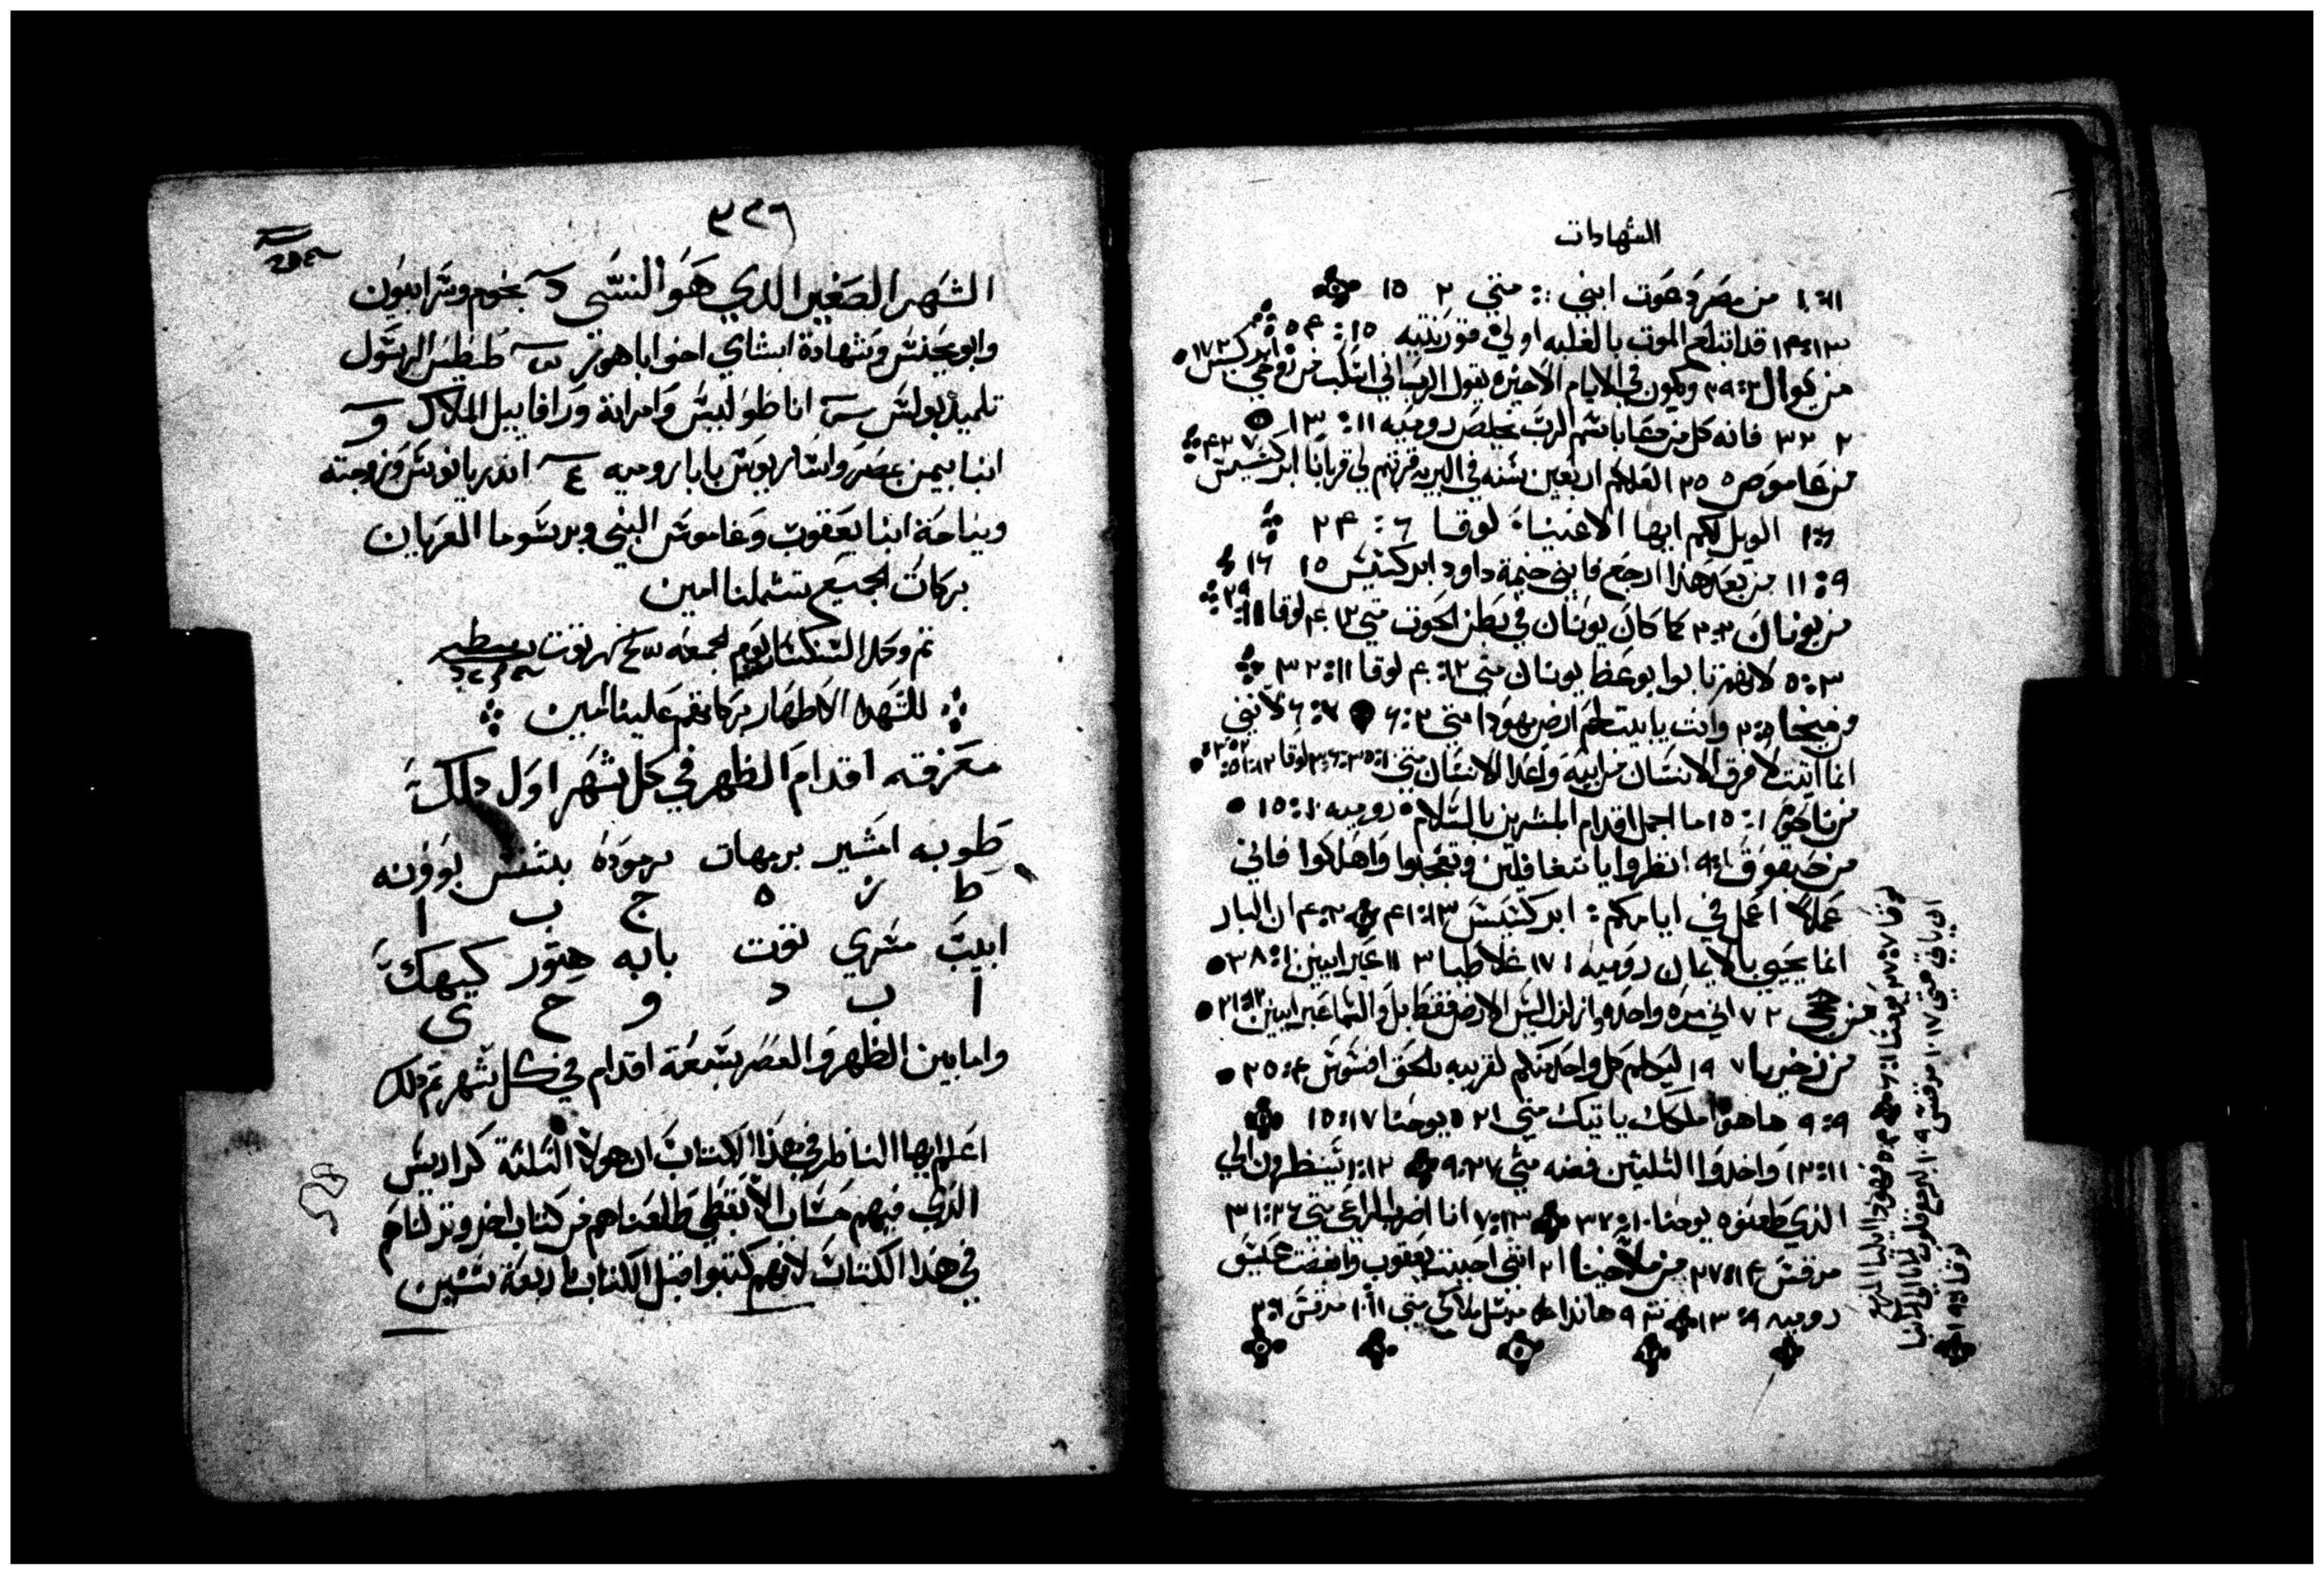 الشهادات
١:١١ من مصر دعوت ابني :: متي ٢ ١٥
١٤:١٣ قد ابتلع الموت بالغلبه اولي قورنتيه ١٥ : ٥٤
من يوال ٢٩:٢ ويكون في الايام الاخيره يقول الرب اني اسكب من روحي ابركسيس ١٧٢
٢ ٣٢ فانه كل من دعا باسم الرب يخلص روميه ١١: ١٣
من عاموص ٥ ٢٥ لعلكم اربعين سنه في البريه قربتم لي قربانا ابركسيس ٧ ٤٢
١:٦ الويل لكم ايها الاغنياء لوقا ٦ : ٢٤
١١:٩ من بعد هذا ارجع فابني خيمة داود ابركسيس ١٥ ١٦
من يونان ٢:٢ كما كان يونان في بطن الحوت متي ١٢ ٤٠ لوقا ١١ ٢٩
٥:٣ لانهم تابوا بوعظ يونان متي ١٢: ٤٠ لوقا ١١: ٣٢
من ميخا ٥:٢ وانت يا بيت لحم ارض يهودا متي ٢:٦ ٧:٦ لانني
انما اتيت لافرق الانسان من ابيه واعدا الانسان متي
من ناحوم ١:١٥ ما اجمل اقدام المبشرين بالسلام روميه ١٠:١٥
من حبقوق ١:٩ انظروا يا متغافلين وتعجبوا واهلكوا فاني
عملاً اعمل في ايامكم : ابركسيس ١٣:٤١ ٢:٤ ان البار
انما يحيي بالايمان روميه ١ ١٧ غلاطيا ٣ ١١ عبرانيين ١٠: ٣٨
من حجي ٢ ٧ اني مره واحده وازلزل ليس الارض فقط بل والسما عبرانيين ١٢:٢١
من زخريا ٧ ١٩ ليتكلم كل واحد منكم لقريبه بالحق افسوس ٤:٢٥
٩:٩ ها هوذا ملكك ياتيك متي ٢١ ٥ يوحنا ١٧:١٥
١٣:١١ واخذوا الثلثين فضه متي ٩:٢٧ ١٠:١٢ سينظرون الي
الذي طعنوه يوحنا ٣٧:١٠ ٧:١٣ انا اضرب الراعي متي ٢٦:٣١
مرقس ١٤:٢٧ من ملاخيا ٢١ انني احببت يعقوب وابغضت عيسو
روميه ٩: ١٣ هانذا مرسل ملاكي متي ١١:١٠ مرقس ٢:١
٣٢٦
الشهر الصغير الذي هو النسي بجوم وسرابيون
وابو يحنس وشهادة ابشاي اخو ابا هور طيطس الرسول
تلميذ بولس اناطوليس وامراته ورافاييل الملاك
انبا بيمن عصر واسار يوس بابا روميه اندريانوس وزوجته
ونياحة انبا يعقوب وعاموس النبي وبرسوما العريان
بركات الجميع تشملنا امين
تم وكمل السنكسار يوم الجمعه توت
للشهدا الاطهار بركاتهم علينا امين
معرفته اقدام الظهر في كل شهر اول ذلك
طوبه امشير برمهات برموده بشنس بوونه
ط ز ه ج ب ا
ابيب مسري توت بابه هتور كيهك
ا ب د و ح ي
واما بين الظهر والعصر سبعة اقدام في كل شهر تم ذلك
اعلم ايها الناظر في هذا الكتاب ان هولا الثلثة كراريس
الذي فيهم حساب الابقطي طلعناهم من كتاب اخر ونزلناهم
في هذا الكتاب لانهم كتبوا قبل الكتاب باربعة سنين